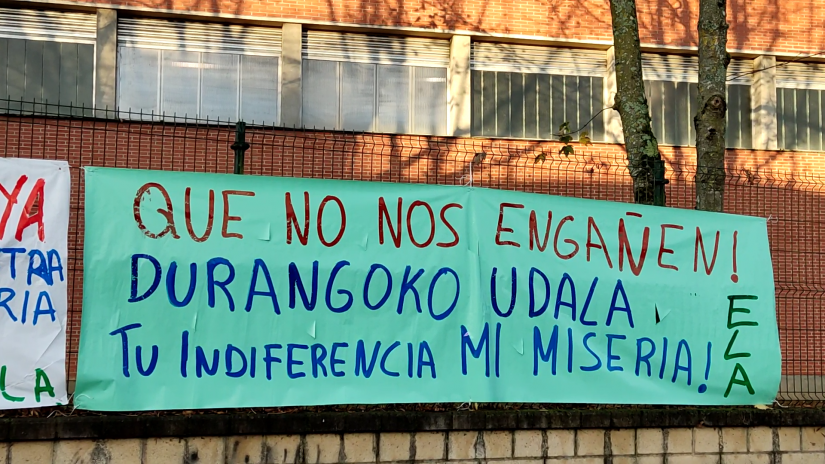 YA
TRA
RIA
LA
QUE NO NOS ENGAÑEN!
DURANGOKO UDALA.
TU INDIFERENCIA MI MISERIA!
ELA